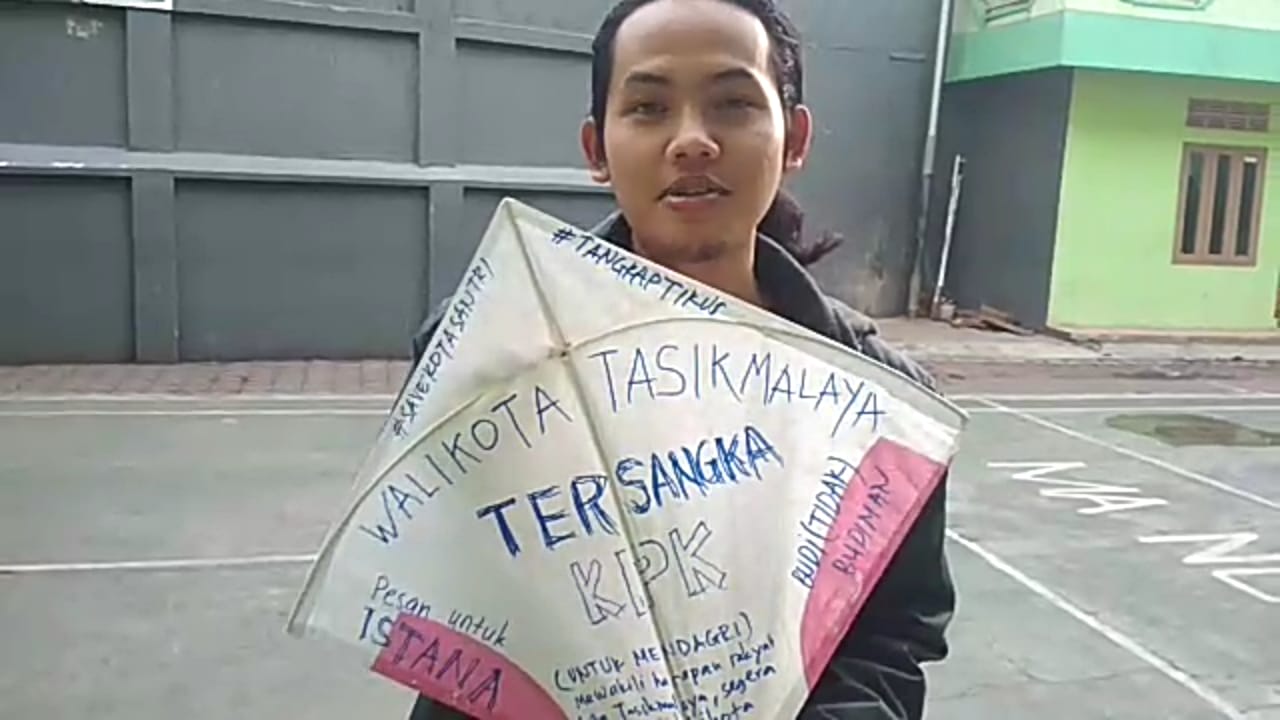 #SAVEKOTASANTRI
#TANGKAPTIKUS
WALIKOTA TASIKMALAYA
TERSANGKA
KPK
BUDI (TIDAK)
BUDIMAN
Pesan untuk
ISTANA
(UNTUK MENDAGRI)
mewakili harapan rakyat
Tasikmalaya, segera
MA